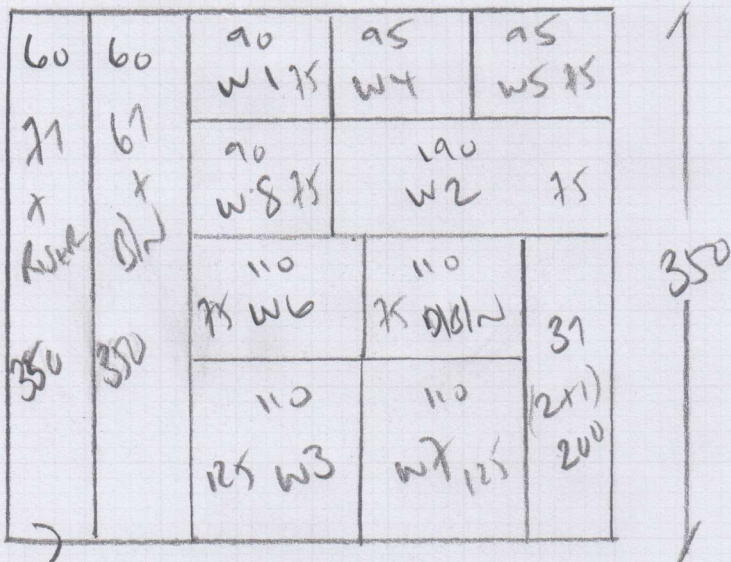 60
71
x
350
60
61
x
350
90
W1 75
95
W4
95
W5 75
90
W8 75
190
W2 75
110
75 W6
110
75
110
125 W3
110
W7 125
31
(2+1)
200
350